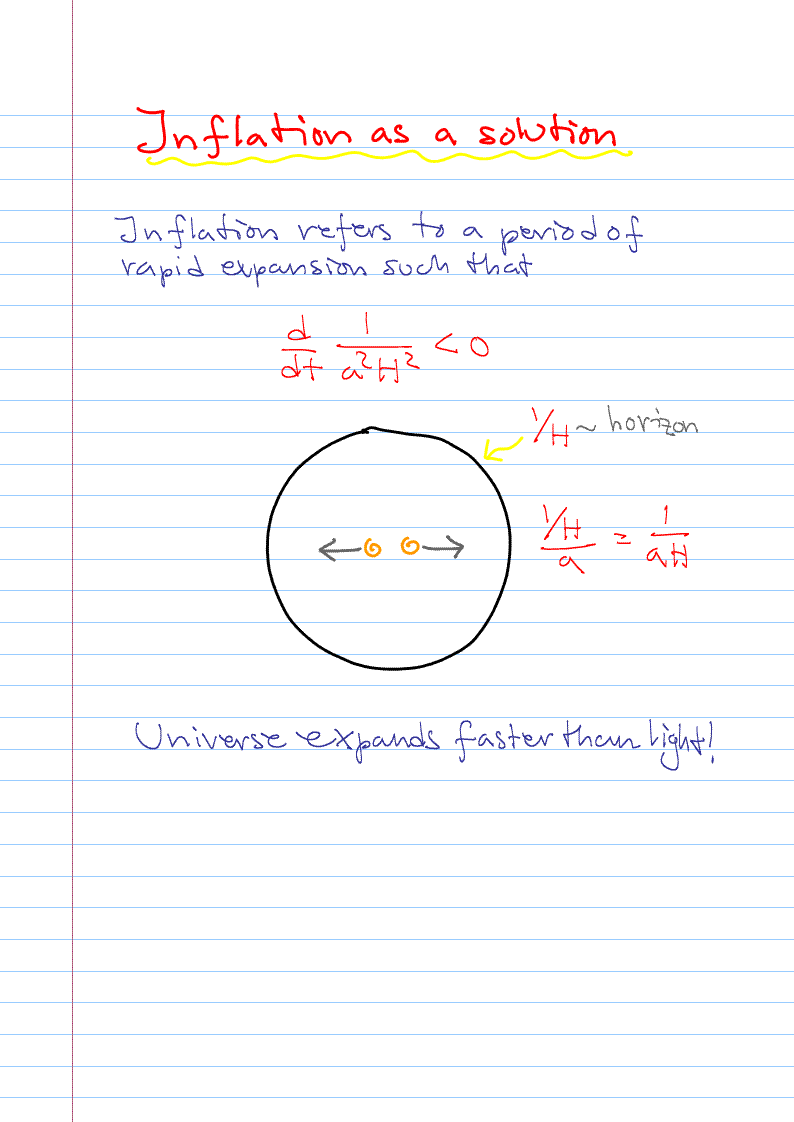 Inflation as a solution
Inflation refers to a period of
rapid expansion such that
d/dt 1/a²H² < 0
1/H ~ horizon
1/H/a = 1/aH
Universe expands faster than light!